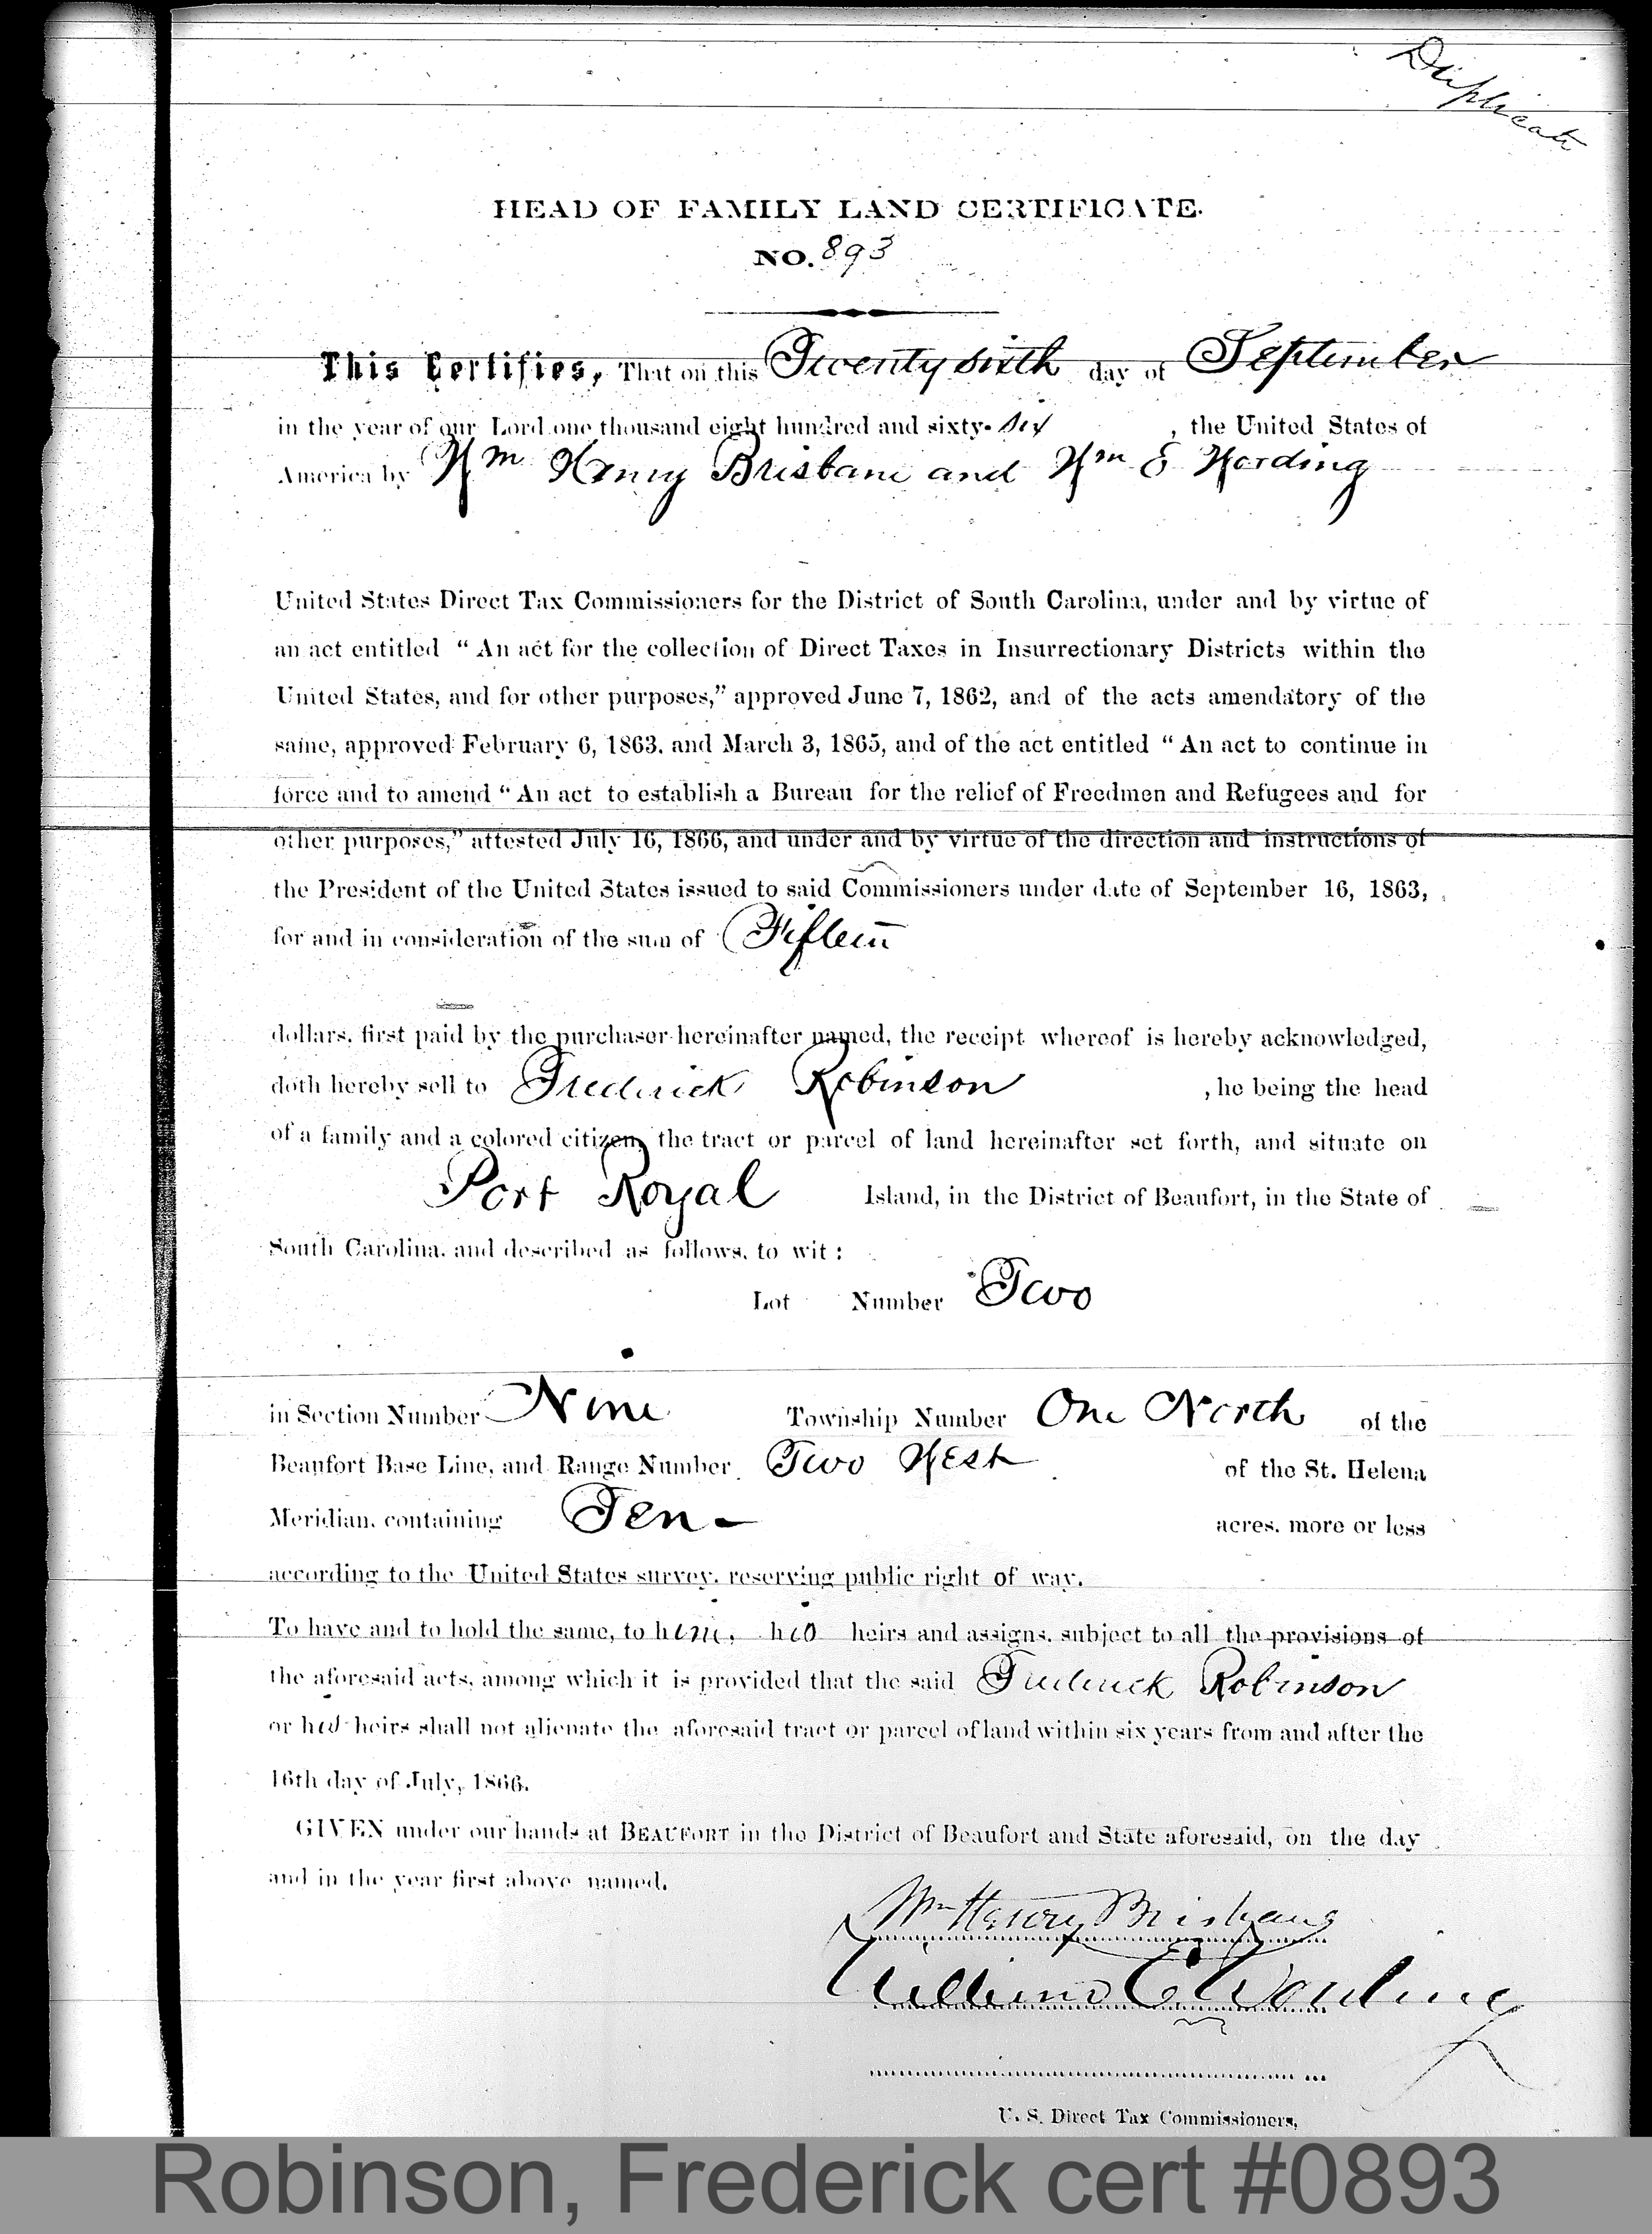 Duplicate
HEAD OF FAMILY LAND CERTIFICATE.
NO. 893
This Certifies, That on this Twenty sixth day of September
in the year of our Lord one thousand eight hundred and sixty-six, the United States of
America by Wm Henry Brisbane and Wm E Wording
United States Direct Tax Commissioners for the District of South Carolina, under and by virtue of
an act entitled “An act for the collection of Direct Taxes in Insurrectionary Districts within the
United States, and for other purposes,” approved June 7, 1862, and of the acts amendatory of the
same, approved February 6, 1863, and March 3, 1865, and of the act entitled “An act to continue in
force and to amend “An act to establish a Bureau for the relief of Freedmen and Refugees and for
other purposes,” attested July 16, 1866, and under and by virtue of the direction and instructions of
the President of the United States issued to said Commissioners under date of September 16, 1863,
for and in consideration of the sum of Fifteen
dollars, first paid by the purchaser hereinafter named, the receipt whereof is hereby acknowledged,
doth hereby sell to Frederick Robinson , he being the head
of a family and a colored citizen, the tract or parcel of land hereinafter set forth, and situate on
Port Royal Island, in the District of Beaufort, in the State of
South Carolina, and described as follows, to wit:
Lot Number Two
in Section Number Nine Township Number One North of the
Beaufort Base Line, and Range Number Two West of the St. Helena
Meridian, containing Ten - acres, more or less
according to the United States survey, reserving public right of way.
To have and to hold the same, to him, his heirs and assigns, subject to all the provisions of
the aforesaid acts, among which it is provided that the said Frederick Robinson
or his heirs shall not alienate the aforesaid tract or parcel of land within six years from and after the
16th day of July, 1866.
GIVEN under our hands at BEAUFORT in the District of Beaufort and State aforesaid, on the day
and in the year first above named.
Wm Henry Brisbane
William E Wording
U. S. Direct Tax Commissioners,
Robinson, Frederick cert #0893